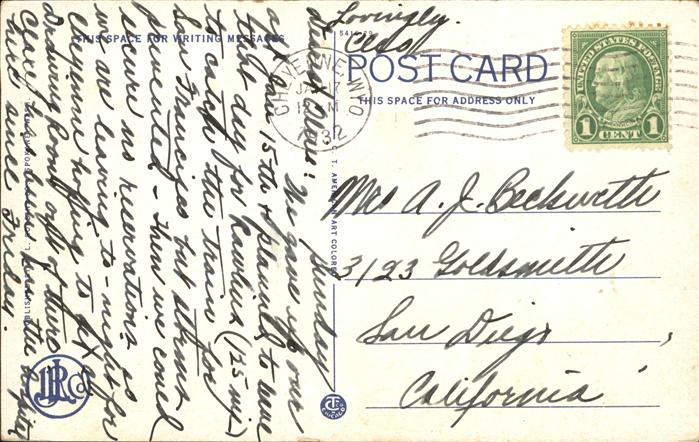 Lovingly.
Cleo
THIS SPACE FOR WRITING MESSAGES
Sunday
Dearest Clare: We gave up our
apt. Jan 15th & planned to leave
that day for Rawlins (125 mi.)
to catch the train for
San Francisco but storms
prevented - Then we could
secure no reservations so
we are leaving to-night for
Cheyenne hoping to
Drawing Room out of there
here since Friday.
5416-29
POST CARD
THIS SPACE FOR ADDRESS ONLY
CHEYENNE, WYO
JAN 17
12 M
1932
UNITED STATES POSTAGE
FRANKLIN
1 CENT 1
Mrs A. J. Beckwith
3123 Goldsmith
San Diego,
California
C. T. AMERICAN ART COLORED
CT
CHICAGO